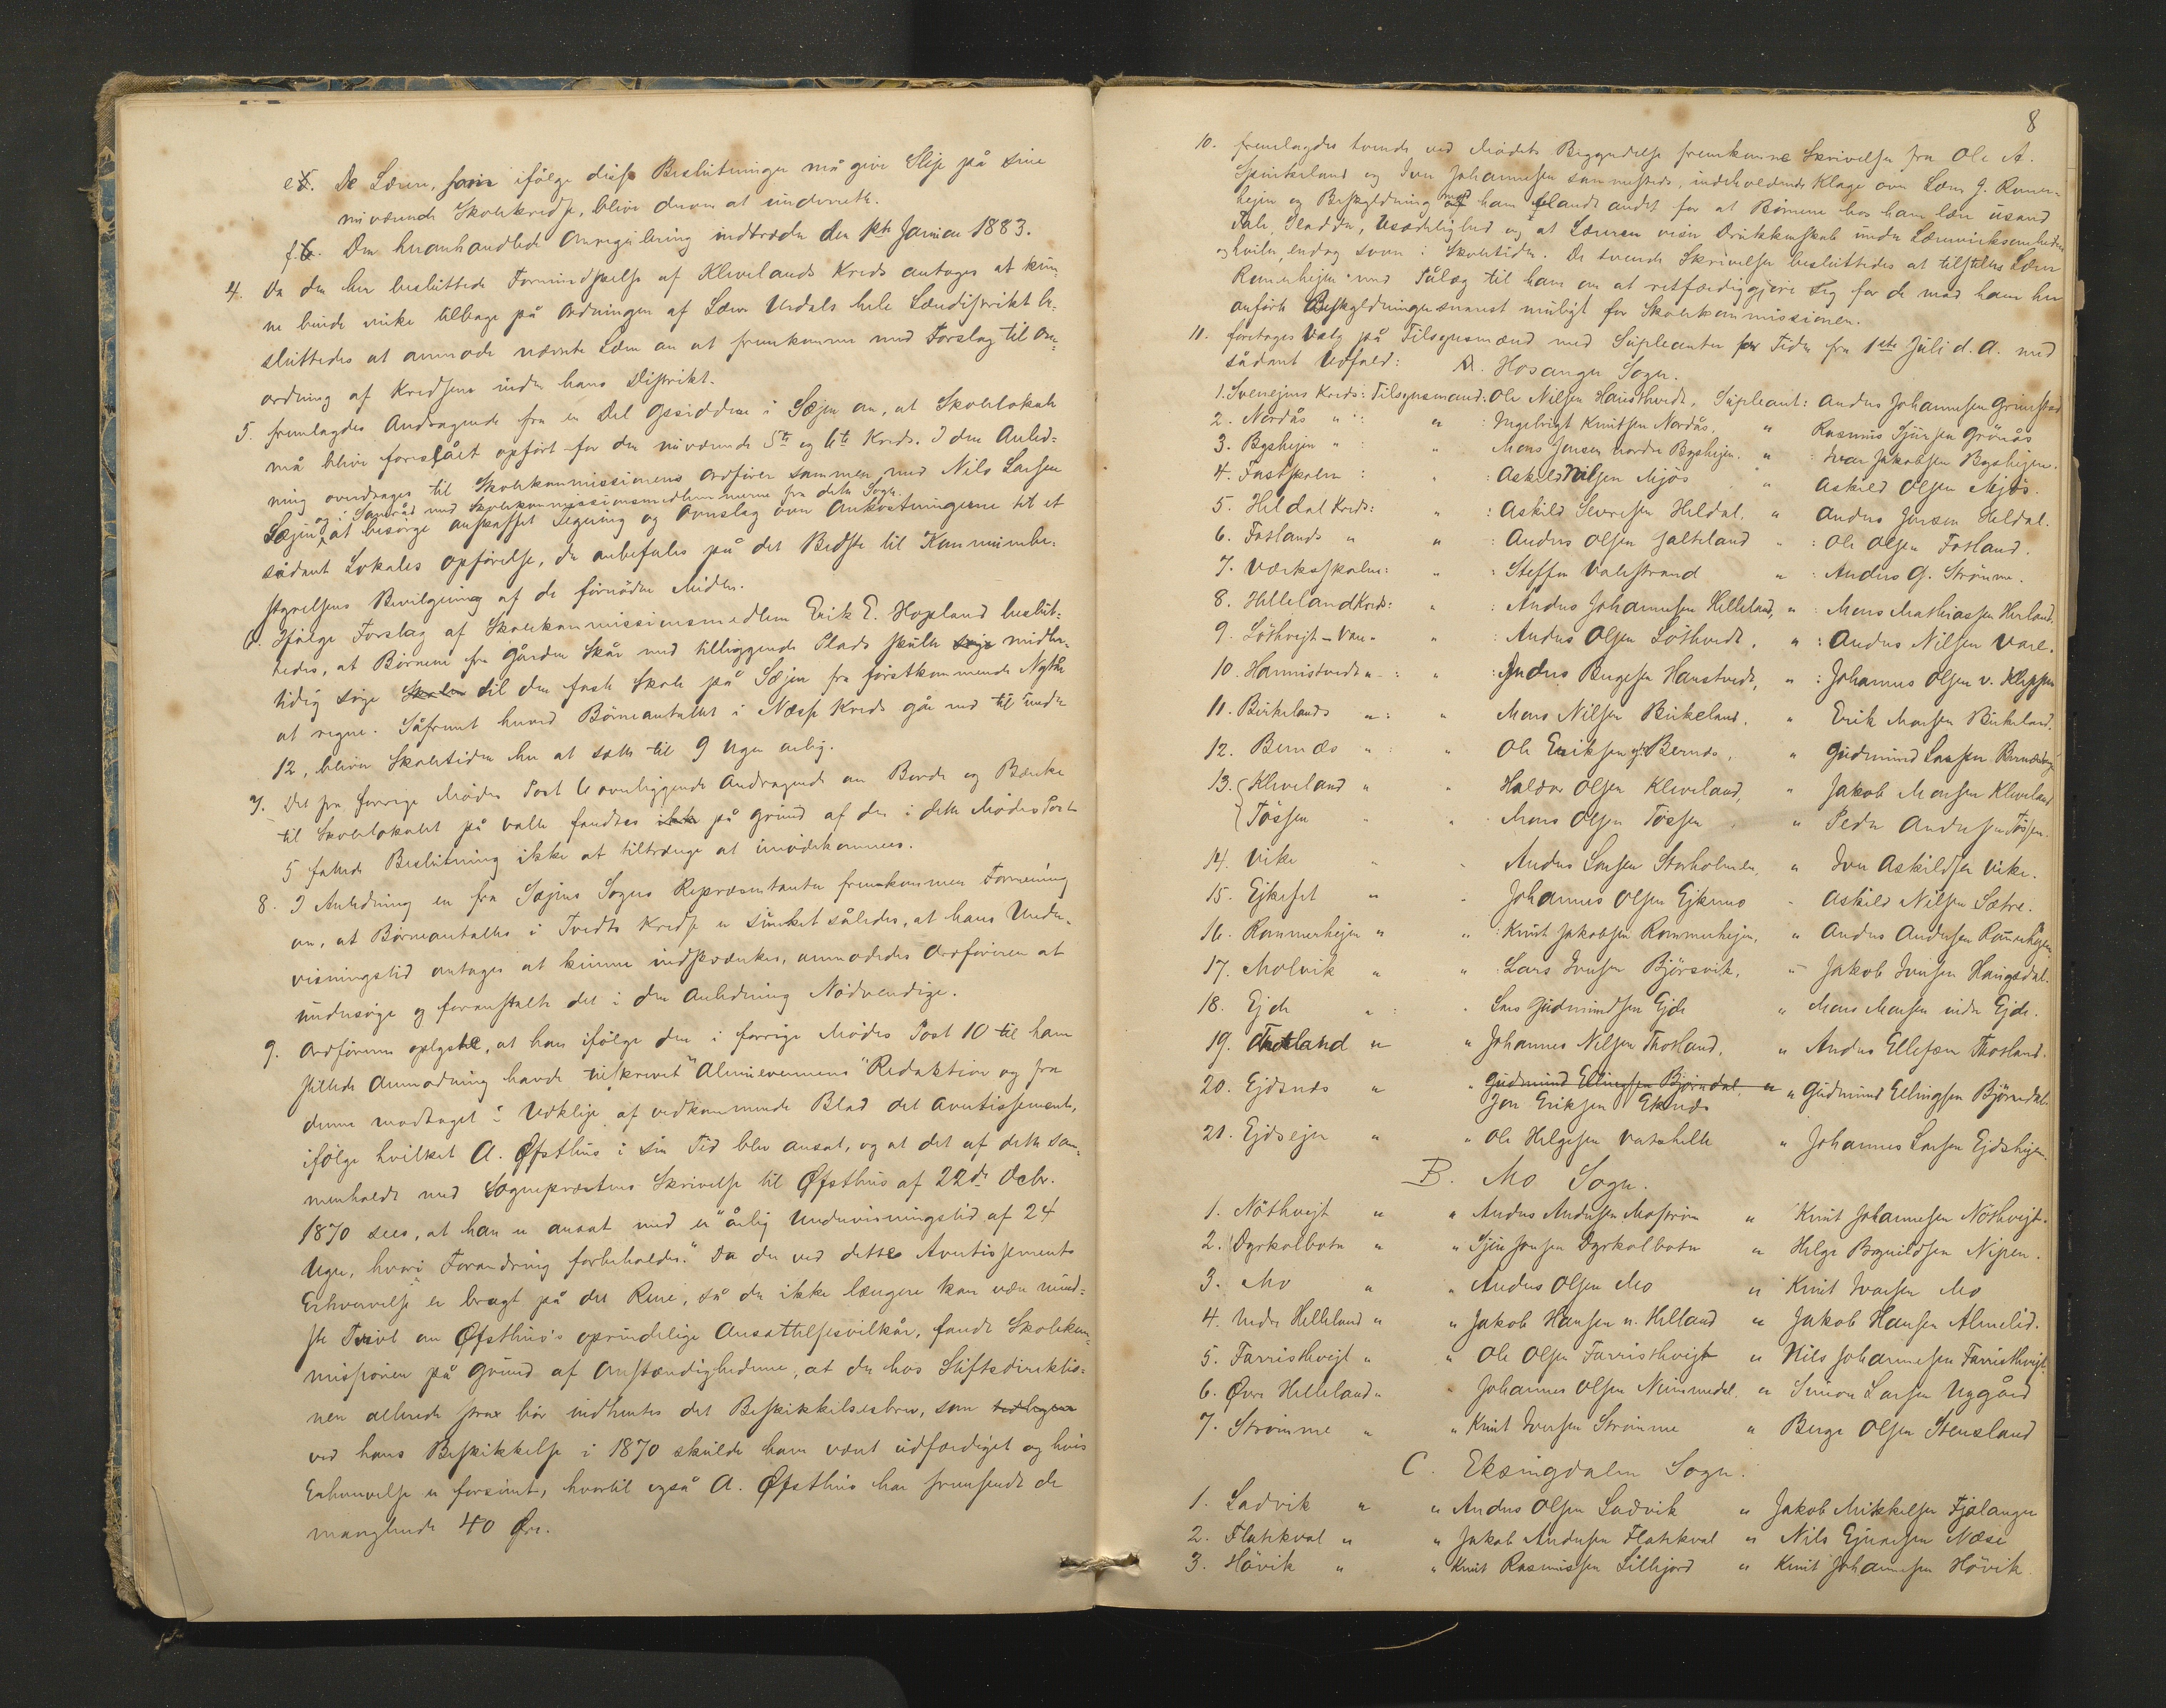 e5. De Lærere, som ifølge disse Beslutninger må give Slip på sine
nuværende Skolekredse, bliver derom at underrette.
f.6. Den heromhandlede Omregulering indtræder den 1ste Januar 1883.
4. Da den her besluttede Formindskelse af Klevelands Kreds antages at kun-
ne burde virke tilbage på Ordningen af Lærer Urdals hele Læredistrikt be-
sluttedes at anmode nævnte Lærer om at fremkomme med Forslag til Om-
ordning af Kredsene inden hans Distrikt.
5. fremlagdes Andragende fra en Del Opsiddere i Sæjm om, at Skolelokale
må blive foreslået opført for den nuværende 5te og 6te Kreds. I den Anled-
ning overdrages til Skolekommissionens Ordfører sammen med Nils Larsen
og i Samråd med Skolekommissionsmedlemmerne fra dette Sogn
Sæjm at besørge anskaffet Tegning og Overslag over Omkostningerne til et
sådant Lokales Opførelse, der anbefales på det Bedste til Kommunebe-
styrelsens Bevilgning af de fornødne Midler.
6. Ifølge Forslag af Skolekommissionsmedlem Erik E. Hopland beslut-
tedes, at Børnene fra Gården Skår med tilliggende Plads skulle søge midler-
tidig søge Skolen til den faste Skole på Sæjm fra førstkommende Nytår
at regne. Såfremt herved Børneantallet i Næsse Kreds går ned til under
12, bliver Skoletiden her at sætte til 9 Uger årlig.
7. Det fra forrige Mødes Post 6 overliggende Andragende om Borde og Bænke
til Skolelokalet på Valle fandtes ikke på Grund af den i dette Mødes Post
5 fattede Beslutning ikke at tiltrænge at imødekommes.
8. I Anledning en fra Sæjms Sogns Repræsentanter fremkommen Formening
om, at Børneantallet i Tvedts Kreds er sunket således, at hans Under-
visningstid antages at kunne indskrænkes, anmodedes Ordføreren at
undersøge og foranstalte det i den Anledning Nødvendige.
9. Ordføreren oplyste, at han ifølge den i forrige Mødes Post 10 til ham
stillede Anmodning havde tilskrevet "Almuevennens" Redaktion og fra
denne modtaget i Udklip af vedkommende Blad det Avertissement,
ifølge hvilket A. Øfsthus i sin Tid blev ansat, og at det af dette sam-
menholdt med Sogneprestens Skrivelse til Øfsthus af 22de Octbr.
1870 sees, at han er ansat med en "årlig Undervisningstid af 24
Uger, hvori Forandring forbeholdes." Da der ved dettes Avertissements
Erhvervelse er bragt på det Rene, så der ikke længere kan være mind-
ste Tvivl om Øfsthus's oprindelige Ansættelsesvilkår, fandt Skolekom-
missionen på Grund af Omstændighederne, at der hos Stiftsdirektio-
nen allerede strax bør indhentes det Beskikkelsesbrev, som
ved hans Beskikkelse i 1870 skulde have været udfærdiget og hvis
Erhvervelse er forsømt, hvortil også A. Øfsthus har fremsendt de
manglende 40 Øre.
8
10. fremlagdes tvende ved Mødets Begyndelse fremkomne Skrivelser fra Ole A.
Spinkeland og Iver Johannesen sammesteds, indeholdende Klage over Lærer G. Rommer-
hejm og Beskyldning mod ham blandt andet for at Børnene hos ham lære usand
Tale, Sladder, Usædelighed og at Læreren viser Drukkenskab under Lærervirksomheden
og hviler, endog sover i Skoletiden. De tvende Skrivelser besluttedes at tilstilles Lærer
Rommerhejm med Pålæg til ham om at retfærdiggjøre sig for de mod ham her
anførte Beskyldninger snarest muligt for Skolekommissionen.
11. foretages Valg på Tilsynsmænd med Supleanter for Tiden fra 1ste Juli d. A. med
sådant Udfald: A. Hosanger Sogn.
1. Sverejms Kreds: Tilsynsmand: Ole Nilsen Hausthvedt, Supleant: Anders Johannesen Grimstad
2. Nordås " : " : Ingebrigt Knutsen Nordås. " Rasmus Sjursen Grønås
3. Byshejm " : " Mons Jensen nordre Byshejm. " : Ivar Jakobsen Byshejm.
4. Fastskolen : " : Askild Nilsen Mjøs " Askild Olsen Mjøs.
5. Heldal Kreds: " : Askild Severesen Heldal. " Anders Jensen Heldal.
6. Fosslands " " : Anders Olsen Jalteland " : Ole Olsen Fosland.
7. Værksskolen: " : Steffen Valestrand " : Anders G. Strømme.
8. Helleland Kreds: " : Anders Johannesen Helleland, " : Mons Mathiassen Herland.
9. Løthvejt - Vare " " : Anders Olsen Løthvedt. " : Anders Nilsen Vare.
10. Hannistvedt " : " : Anders Bergesen Hanstvedt, " : Johannes Olsen v. Kleppen
11. Birkelands " : " Mons Nilsen Birkeland. " Erik Monsen Birkeland.
12. Bernæs " : " Ole Eriksen Bernæs. " Gudmund Larsen Bernæs
13. Kleveland " " Haldor Olsen Kleveland, " Jakob Monsen Kleveland
Tøssen " " Mons Olsen Tøssen " Peder Andersen Tøssen.
14. Vike " " Anders Larsen Storholmen, " Iver Askildsen Vike.
15. Ejkeset " " Johannes Olsen Ejkemo " Askild Nilsen Sætre.
16. Rommerhejm " " : Knut Jakobsen Rommerhejm, " Anders Andersen Rommerhejm
17. Molvik " " Lars Iversen Bjørsvik. " Jakob Iversen Haugsdal.
18. Ejde " : " Lars Gudmundsen Ejde " Mons Monsen indre Ejde.
19. Thosland " " Johannes Nilsen Thosland. " Anders Ellefsen Thosland.
20. Ejdsnæs " " Gudmund Ellingsen Bjørndal, " " Gudmund Ellingsen Bjørndal.
Jon Eriksen Eknæs
21. Ejdsejm " " Ole Helgesen Vatshelle " Johannes Larsen Ejdshejm.
B. Mo Sogn.
1. Nøthvejt " " Anders Andersen Mostrøm " Knut Johannesen Nøthvejt.
2. Dyrkolbotn " " Sjur Jonsen Dyrkolbotn " Helge Bryuildsen Nipen.
3. Mo " " Anders Olsen Mo " Knut Ivarsen Mo
4. Nedre Helleland " " Jakob Hansen n. Helland " Jakob Hansen Almelid.
5. Farristhvejt " " Ole Olsen Farristhvejt " Nils Johannesen Farristhvejt.
6. Øvre Helleland " " Johannes Olsen Nummedal. " Simon Larsen Nygård
7. Strømme " " Knut Iversen Strømme " Berge Olsen Stensland
C. Eksingdalen Sogn.
1. Ladvik " " Anders Olsen Ladvik " Jakob Mikkelsen Fjalanger
2. Flatekval " " Jakob Andersen Flatekval " Nils Ejnarsen Næse
3. Høvik " " Knut Rasmussen Lillejord " Knut Johannesen Høvik